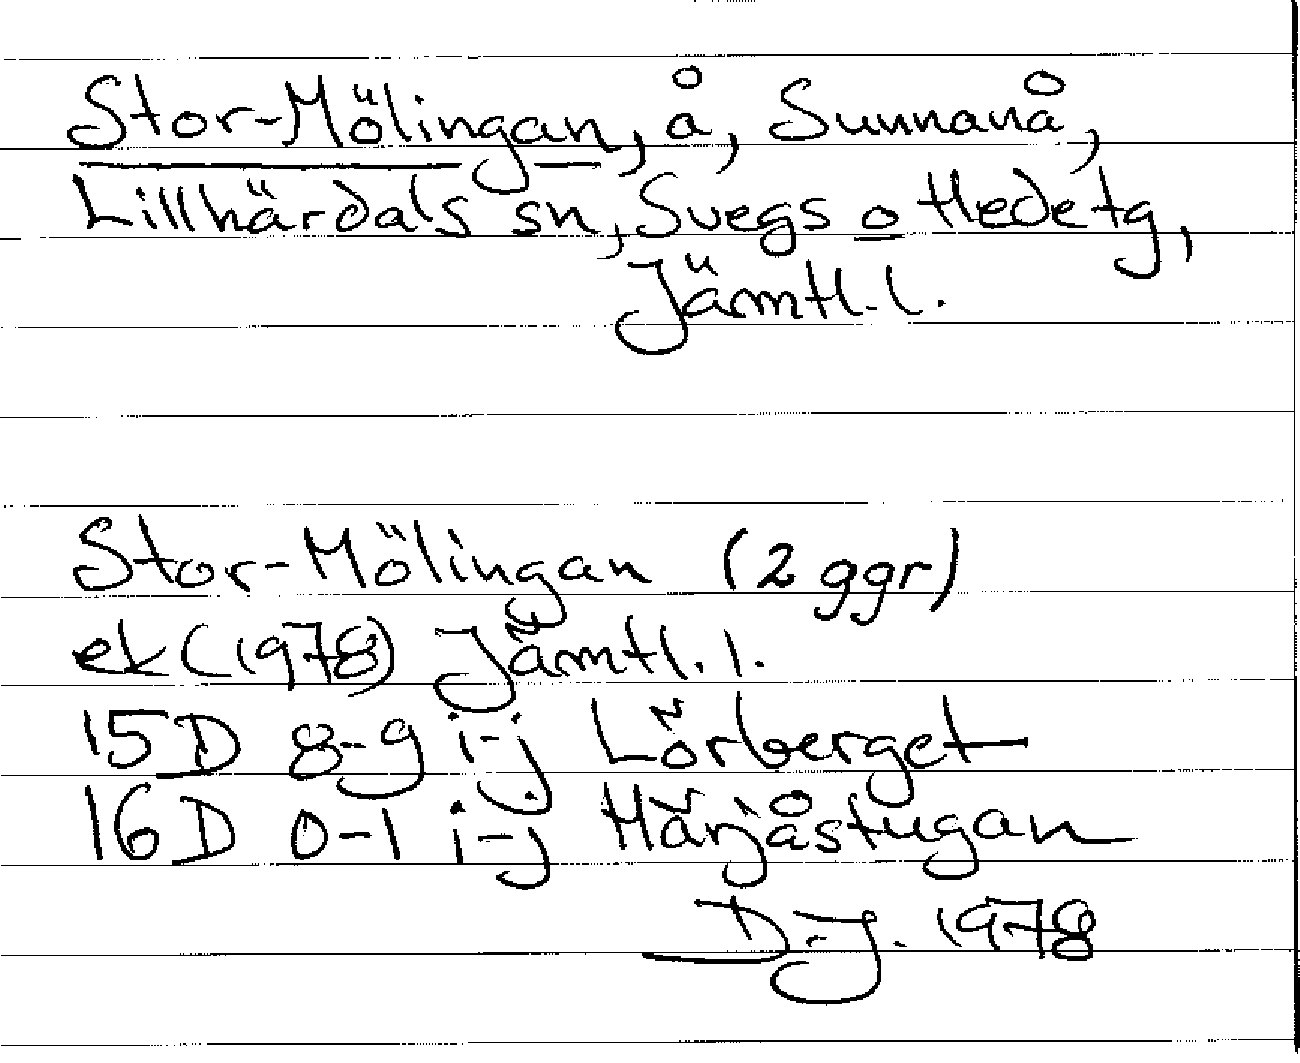 Stor-Mölingan, å, Sunnanå,
Lillhärdals sn, Svegs o Hede tg,
Jämtl. l.
Stor-Mölingan (2 ggr)
ek (1978) Jämtl. l.
15D 8-9 i-j Lörberget
16D 0-1 i-j Härjåstugan
D-J. 1978